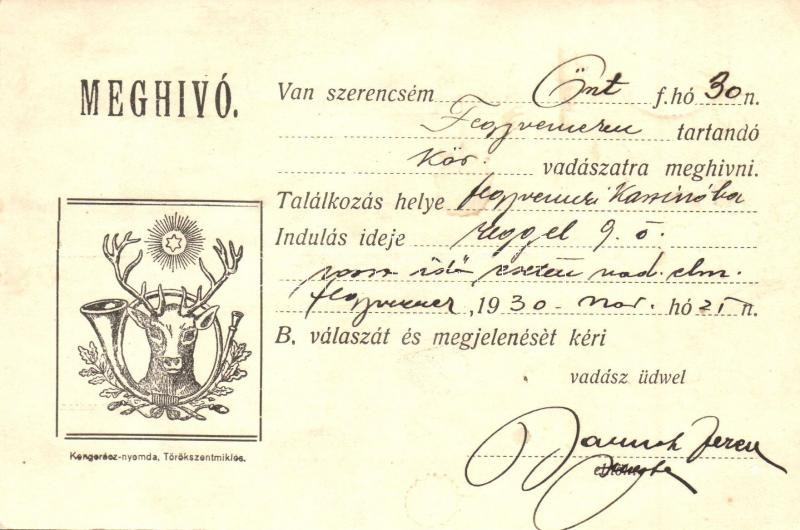 MEGHIVÓ.
Van szerencsém Önt f. hó 30 n.
Fegyverneken tartandó
Kör. vadászatra meghivni.
Találkozás helye fegyverneki Kassinóba
Indulás ideje reggel 9. ó.
rossz idő esetén vad. elm.
fegyvernek, 1930 nov. hó 21 n.
B. válaszát és megjelenésèt kéri
vadász üdwel
Ferenc
Kengerész-nyomda, Törökszentmiklós.